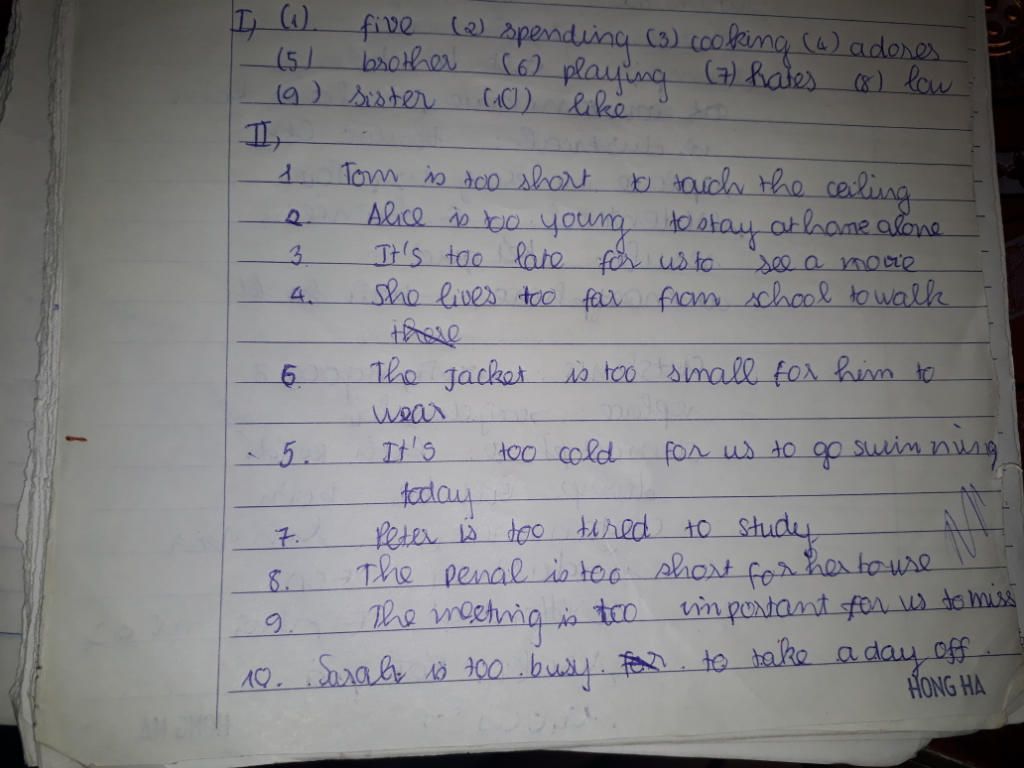 I, (1). five (2) spending (3) cooking (4) adores
(5) brother (6) playing (7) hates (8) low
(9) sister (10) like
II,
1. Tom is too short to touch the ceiling
2. Alice is too young to stay at home alone
3. It's too late for us to see a movie
4. She lives too far from school to walk
there
6. The jacket is too small for him to
wear
5. It's too cold for us to go swimming
today
7. Peter is too tired to study
8. The pencil is too short for her to use
9. The meeting is too important for us to miss
10. Sarah is too busy for to take a day off.
HONG HA